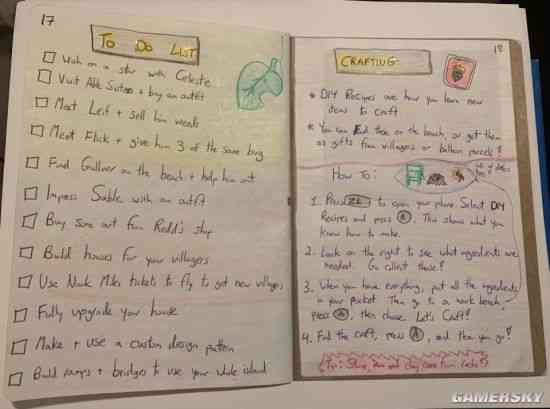 17
To Do List
Wish on a star with Celeste
Visit Able Sisters + buy an outfit
Meet Leif + sell him weeds
Meet Flick + give him 3 of the same bug
Find Gulliver on the beach + help him out
Impress Sable with an outfit
Buy some art from Redd's ship
Build houses for your villagers
Use Nook Miles tickets to fly to get new villagers
Fully upgrade your house
Make + use a custom design pattern
Build ramps + bridges to use your whole island
18
CRAFTING
* DIY Recipes are how you learn new
items to craft
* You can find these on the beach, or get them
as gifts from villagers or balloon parcels!
How To:
1. Press ZL to open your phone. Select DIY
Recipes and press A. This shows what you
know how to make.
2. Look on the right to see what ingredients are
needed. Go collect these!
3. When you have everything, put all the ingredients
in your pocket. Then go to a work bench,
press A, then choose Let's Craft!
4. Find the craft, press A, and there you go!
Tip: Stone, iron and clay come from rocks!
GAMERSKY